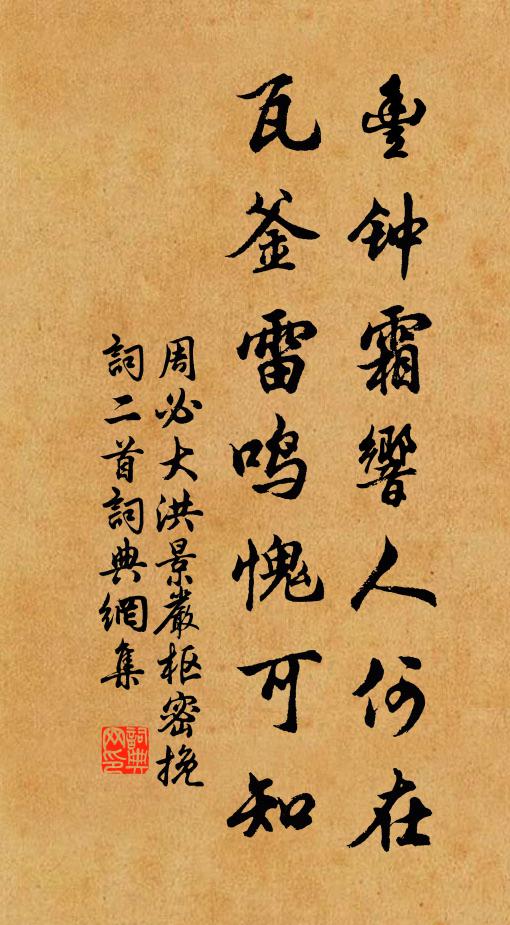 豊钟霜響人何在
瓦釜雷鸣愧可知
周必大洪景嚴枢密挽
詞二首詞典網集
詞典网印